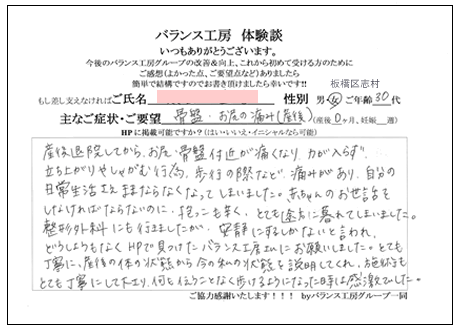 バランス工房 体験談
いつもありがとうございます。
今後のバランス工房グループの改善&向上、これから初めて受ける方のために
ご感想(よかった点、ご要望点など)ありましたら
簡単で結構ですのでお書き頂けましたら幸いです!!
板橋区志村
もし差し支えなければご氏名 性別 男・女 ご年齢 30 代
主なご症状・ご要望 骨盤・お尻の痛み(産後) (産後 0ヶ月、妊娠 週)
HPに掲載可能ですか?(はい・いいえ・イニシャルなら可能)
産後退院してから、お尻・骨盤付近が痛くなり、力が入らず、
立ち上がりやしゃがむ行為、歩行の際など、痛みがあり、自分の
日常生活さえままならなくなってしまいました。赤ちゃんのお世話を
しなければならないのに、抱っこも辛く、とても途方に暮れてしまいました。
整形外科にも行きましたが、安静にするしかないと言われ、
どうしようもなくHPで見つけたバランス工房さんにお願いしました。とても
丁寧に、産後の体の状態から今の私の状態を説明してくれ、施術も
とても丁寧にして下さり、何も伝うことなく歩けるようになった時は感激でした。
ご協力感謝いたします!!! byバランス工房グループ一同